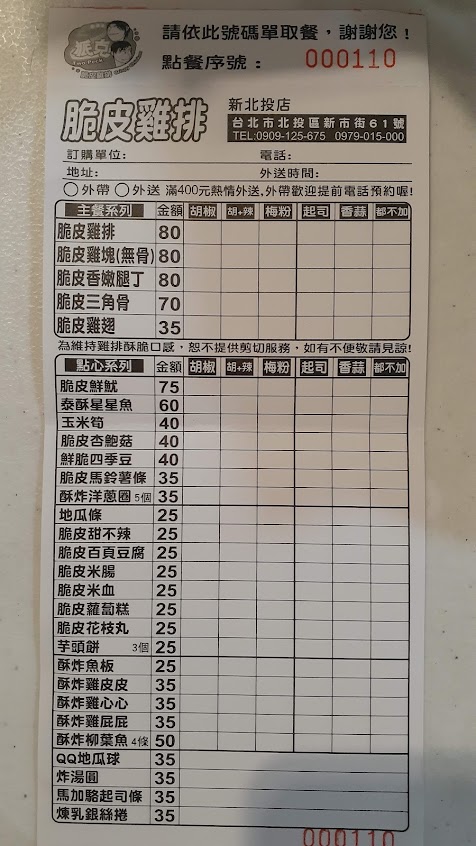 派克
脆皮雞排
請依此號碼單取餐，謝謝您！
點餐序號： 000110
脆皮雞排
新北投店
台北市北投區新市街61號
TEL:0909-125-675 0979-015-000
訂購單位: 電話:
地址: 外送時間:
○外帶 ○外送 滿400元熱情外送,外帶歡迎提前電話預約喔!
主餐系列 金額 胡椒 胡+辣 梅粉 起司 香蒜 都不加
脆皮雞排 80
脆皮雞塊(無骨) 80
脆皮香嫩腿丁 80
脆皮三角骨 70
脆皮雞翅 35
為維持雞排酥脆口感，恕不提供剪切服務，如有不便敬請見諒!
點心系列 金額 胡椒 胡+辣 梅粉 起司 香蒜 都不加
脆皮鮮魷 75
泰酥星星魚 60
玉米筍 40
脆皮杏鮑菇 40
鮮脆四季豆 40
脆皮馬鈴薯條 35
酥炸洋蔥圈 5個 35
地瓜條 25
脆皮甜不辣 25
脆皮百頁豆腐 25
脆皮米腸 25
脆皮米血 25
脆皮蘿蔔糕 25
脆皮花枝丸 25
芋頭餅 3個 25
酥炸魚板 25
酥炸雞皮皮 35
酥炸雞心心 35
酥炸雞屁屁 35
酥炸柳葉魚 4條 50
QQ地瓜球 35
炸湯圓 35
馬加駱起司條 35
煉乳銀絲捲 35
000110